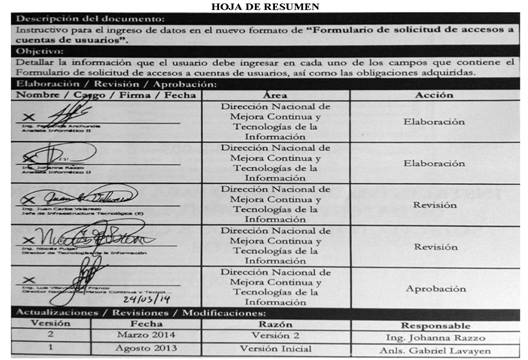 HOJA DE RESUMEN
Descripción del documento:
Instructivo para el ingreso de datos en el nuevo formato de “Formulario de solicitud de accesos a
cuentas de usuarios”.
Objetivo:
Detallar la información que el usuario debe ingresar en cada uno de los campos que contiene el
Formulario de solicitud de accesos a cuentas de usuarios, así como las obligaciones adquiridas.
Elaboración / Revisión / Aprobación:
Nombre / Cargo / Firma / Fecha Área Acción
Dirección Nacional de
Mejora Continua y
Tecnologías de la
Información
Elaboración
Ing. Anchundia
Analista Informático II
Dirección Nacional de
Mejora Continua y
Tecnologías de la
Información
Elaboración
Ing. Johanna Razzo
Analista Informático II
Dirección Nacional de
Mejora Continua y
Tecnologías de la
Información
Revisión
Ing. Juan Carlos
Jefe de Infraestructura Tecnológica (E)
Dirección Nacional de
Mejora Continua y
Tecnologías de la
Información
Revisión
Ing. Nicolás
Director de Tecnologías de la Información
Dirección Nacional de
Mejora Continua y
Tecnologías de la
Información
Aprobación
Ing. Luis Franco
Director Mejora Continua y
24/03/14
Actualizaciones / Revisiones / Modificaciones:
Versión Fecha Razón Responsable
2 Marzo 2014 Versión 2 Ing. Johanna Razzo
1 Agosto 2013 Versión Inicial Anls. Gabriel Lavayen